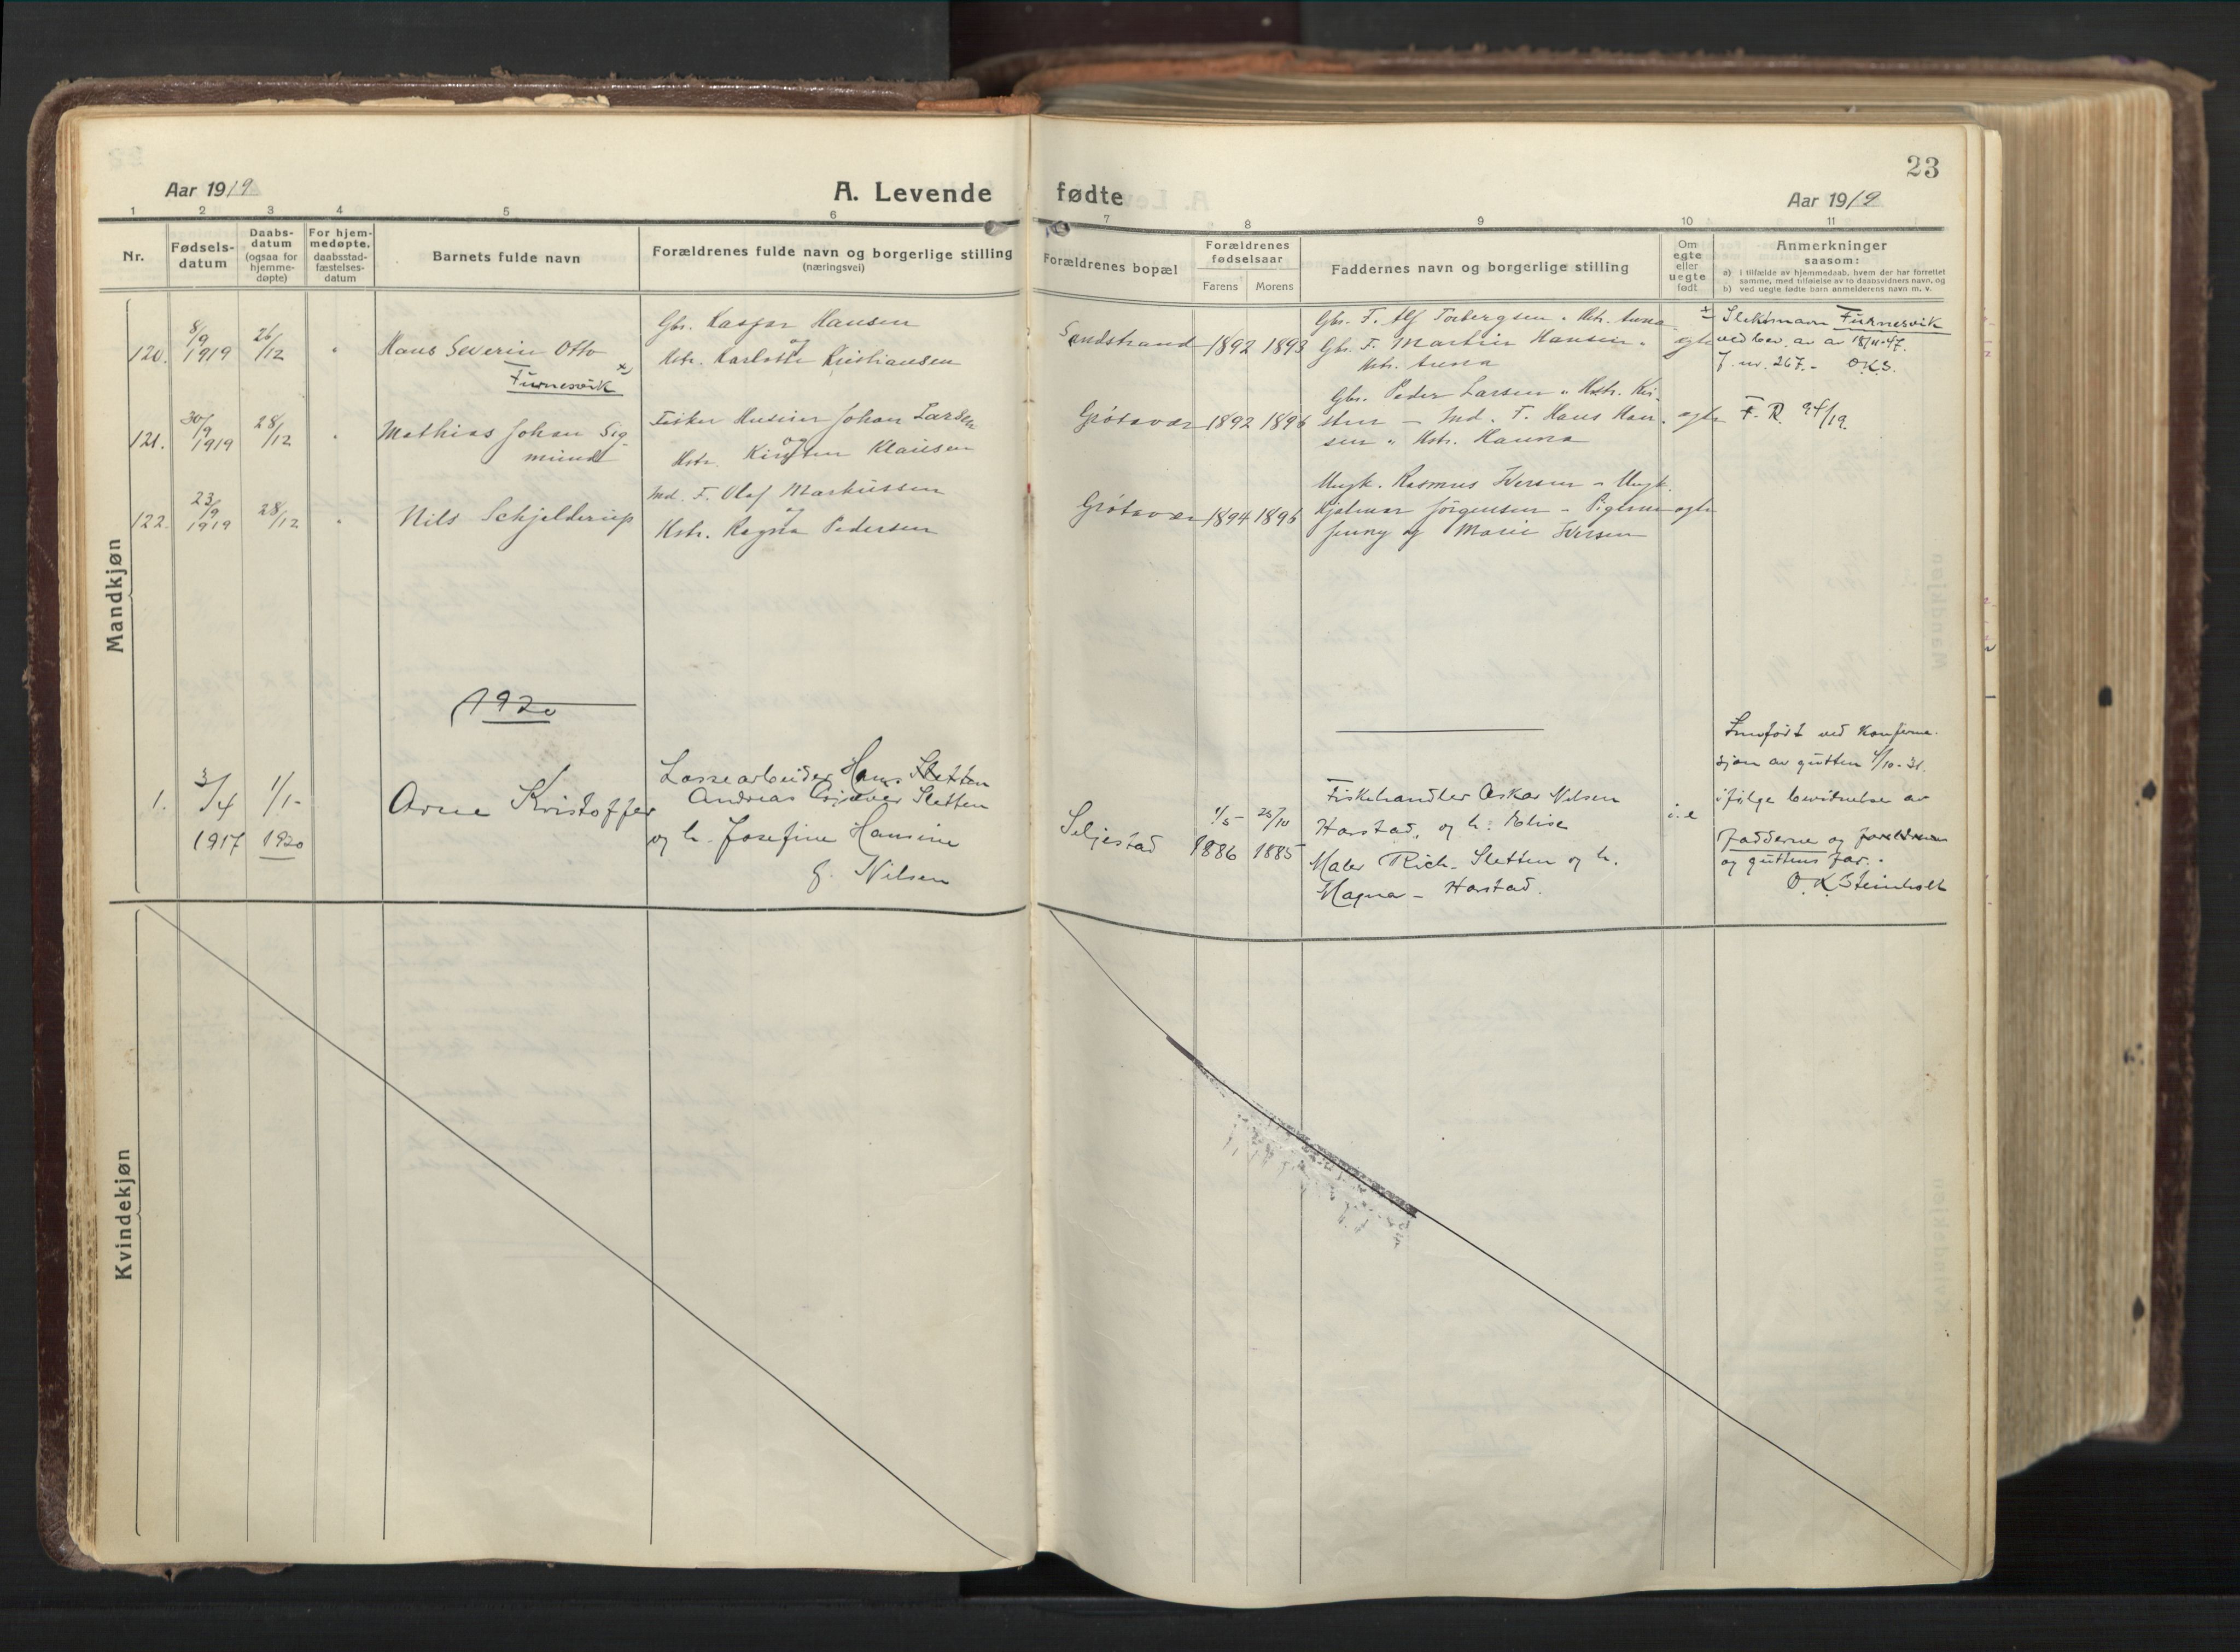 23
Aar 1919
A. Levende
fødte
Aar 1919
1 2 3 4 5 6 7 8 9 10 11
Nr.
Fødsels-
datum
Daabs-
datum
(ogsaa for
hjemme-
døpte)
For hjem-
medøpte,
daabsstad-
fæstelses-
datum
Barnets fulde navn
Forældrenes fulde navn og borgerlige stilling
(næringsvei)
Forældrenes bopæl
Forældrenes
fødselsaar
Farens Morens
Faddernes navn og borgerlige stilling
Om
egte
eller
uegte
født
Anmerkninger
saasom:
a) i tilfælde av hjemmedaab, hvem der har forrettet
samme, med tilføielse av to daabsvidners navn, og
b) ved uegte fødte barn anmelderens navn m. v.
Mandkjøn
120. 8/9 1919 26/12
Hans Severin Otto
Furnesvik x)
Gbr. Kaspar Hansen
og
Hstr. Karlotte Kristiansen
Sandstrand 1892 1893
Gbr. F. Alf Torbergsen
Gbr. F. Martin Hansen
Hstr. Anna
egte
x) Slektsnavn Furnesvik
ved bev. av 18/11-47.
J. nr. 267. - O.K.S.
121. 30/9 1919 28/12
Mathias Johan Sig-
mund
Fisker Johan Larsen
og
Hstr. Kirsten Klausen
Grøtavær 1892 1896
Gbr. Peder Larsen " Hstr. Kir-
sten - Ind. F. Hans Han-
sen " Hstr. Hanna
egte
F. R. 94/19.
122. 23/9 1919 28/12
Nils Schjelderup
Ind. F. Olaf Markussen
og
Hstr. Ragna Pedersen
Grøtavær 1894 1896
Ungk. Rasmus Iversen - Ungk.
Hjalmar Jørgensen - Pigerne
Jenny og Marie Iversen
egte
1920
1. 3/4 1917 1/1- 1920
Arne Kristoffer
Lossearbeider Hans Sletten
Andreas Sletten
og h. Josefine Hansine
f. Nilsen
Seljestad
1/5- 1886 25/10 1885
Fiskehandler Oskar Nilsen
Harstad, og h. Elise
Maler Rich. Sletten og h.
Magna - Harstad.
Innført ved konfirma-
sjon av gutten 4/10-31.
ifølge bevidnelse av
fadderne og foreldrene
og guttens far. -
O. K. Steinholt
Kvindekjøn